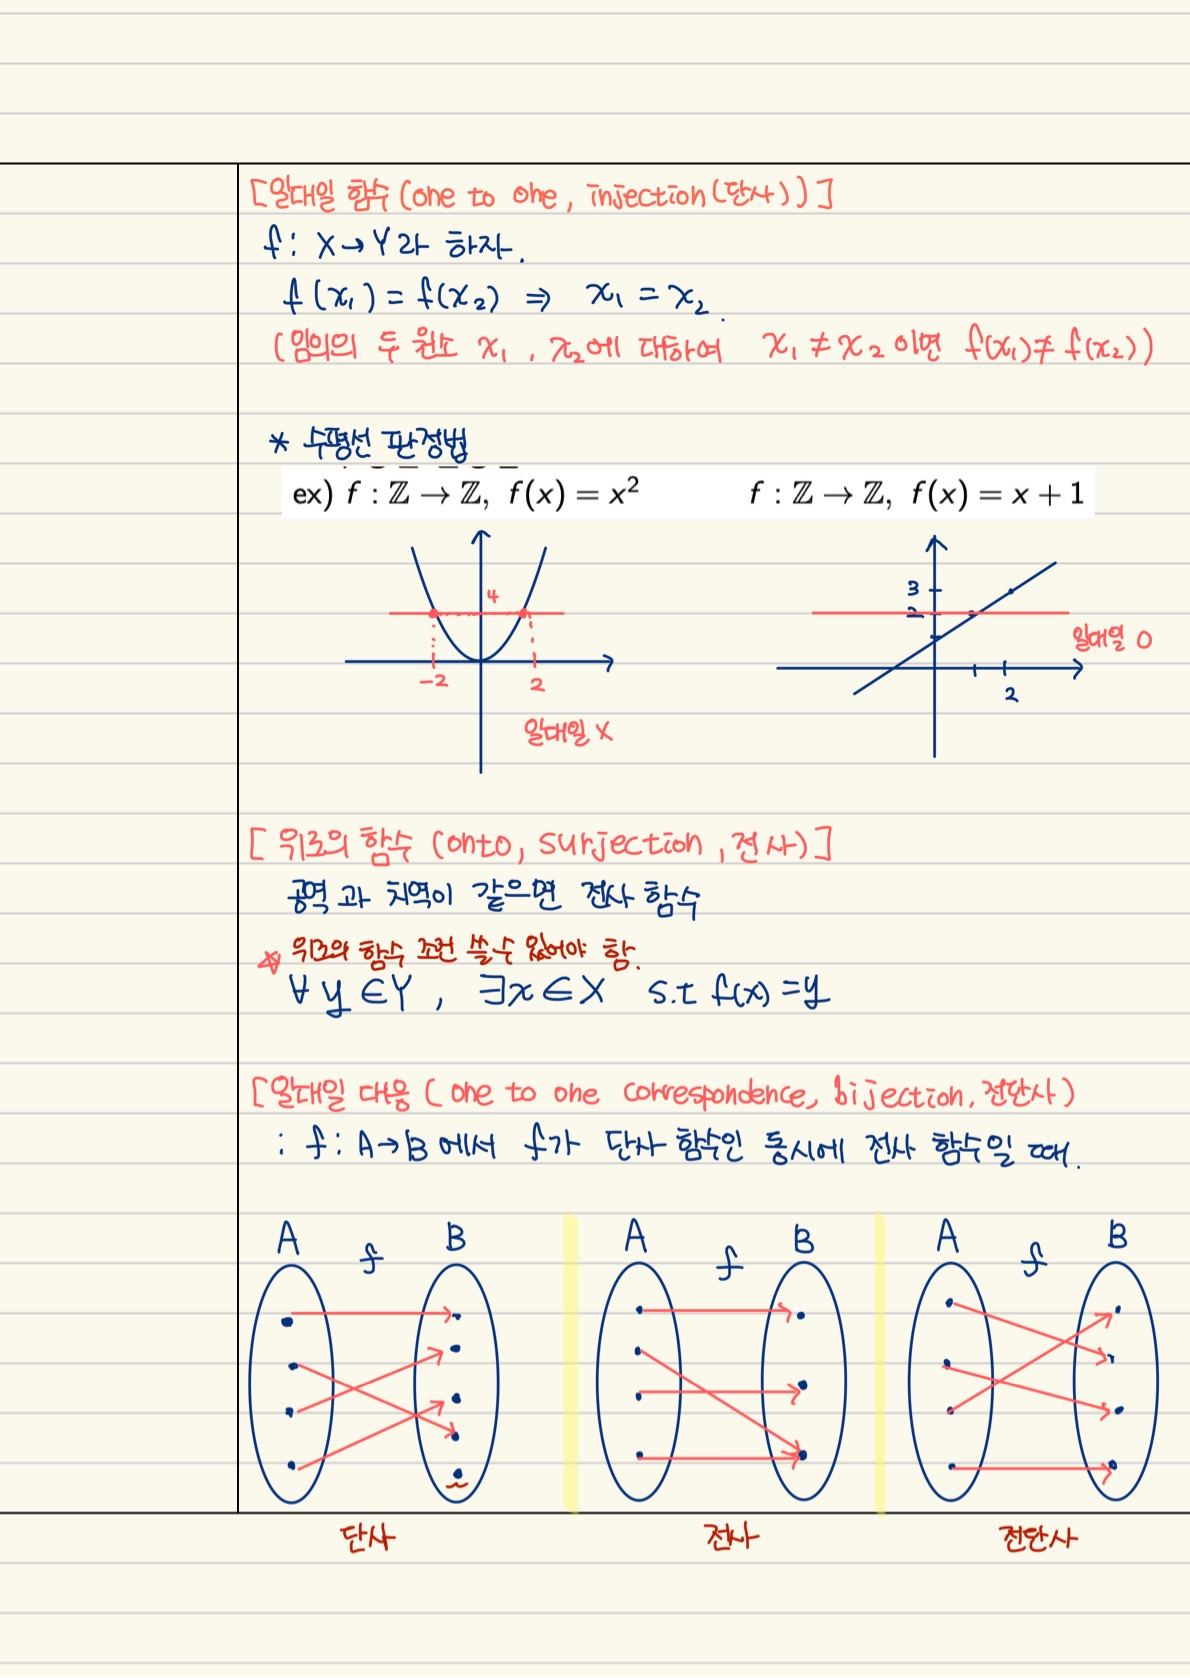 [일대일 함수 (one to one, injection(단사))]
f: X→Y라 하자.
f(x₁) = f(x₂) ⇒ x₁ = x₂.
(임의의 두 원소 x₁, x₂에 대하여 x₁ ≠ x₂ 이면 f(x₁) ≠ f(x₂))
* 수평선 판정법
ex) f : ℤ → ℤ, f(x) = x² f : ℤ → ℤ, f(x) = x + 1
4
-2 2
일대일 X
3
2
2
일대일 O
[위로의 함수 (onto, surjection, 전사)]
공역과 치역이 같으면 전사 함수
☆ 위로의 함수 조건 쓸 수 있어야 함.
∀ y ∈ Y, ∃x ∈ X s.t f(x) = y
[일대일 대응 (one to one correspondence, bijection, 전단사)
: f: A→B 에서 f가 단사 함수인 동시에 전사 함수일 때.
A f B A f B A f B
단사 전사 전단사